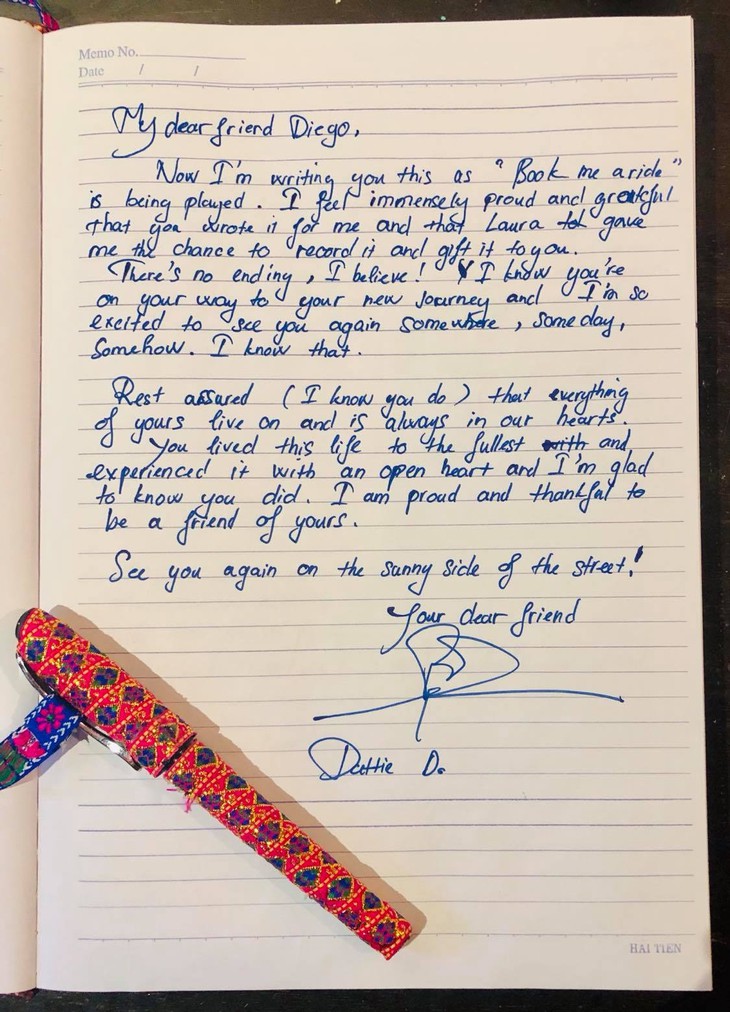 Memo No.
Date / /
My dear friend Diego,
Now I'm writing you this as "Book me a ride"
is being played. I feel immensely proud and grateful
that you wrote it for me and that Laura gave
me the chance to record it and gift it to you.
There's no ending, I believe! I know you're
on your way to your new journey and I'm so
excited to see you again somewhere, someday,
somehow. I know that.
Rest assured (I know you do) that everything
of yours live on and is always in our hearts.
You lived this life to the fullest with and
experienced it with an open heart and I'm glad
to know you did. I am proud and thankful to
be a friend of yours.
See you again on the sunny side of the street!
Your dear friend
Dattie D.
HẢI TIẾN